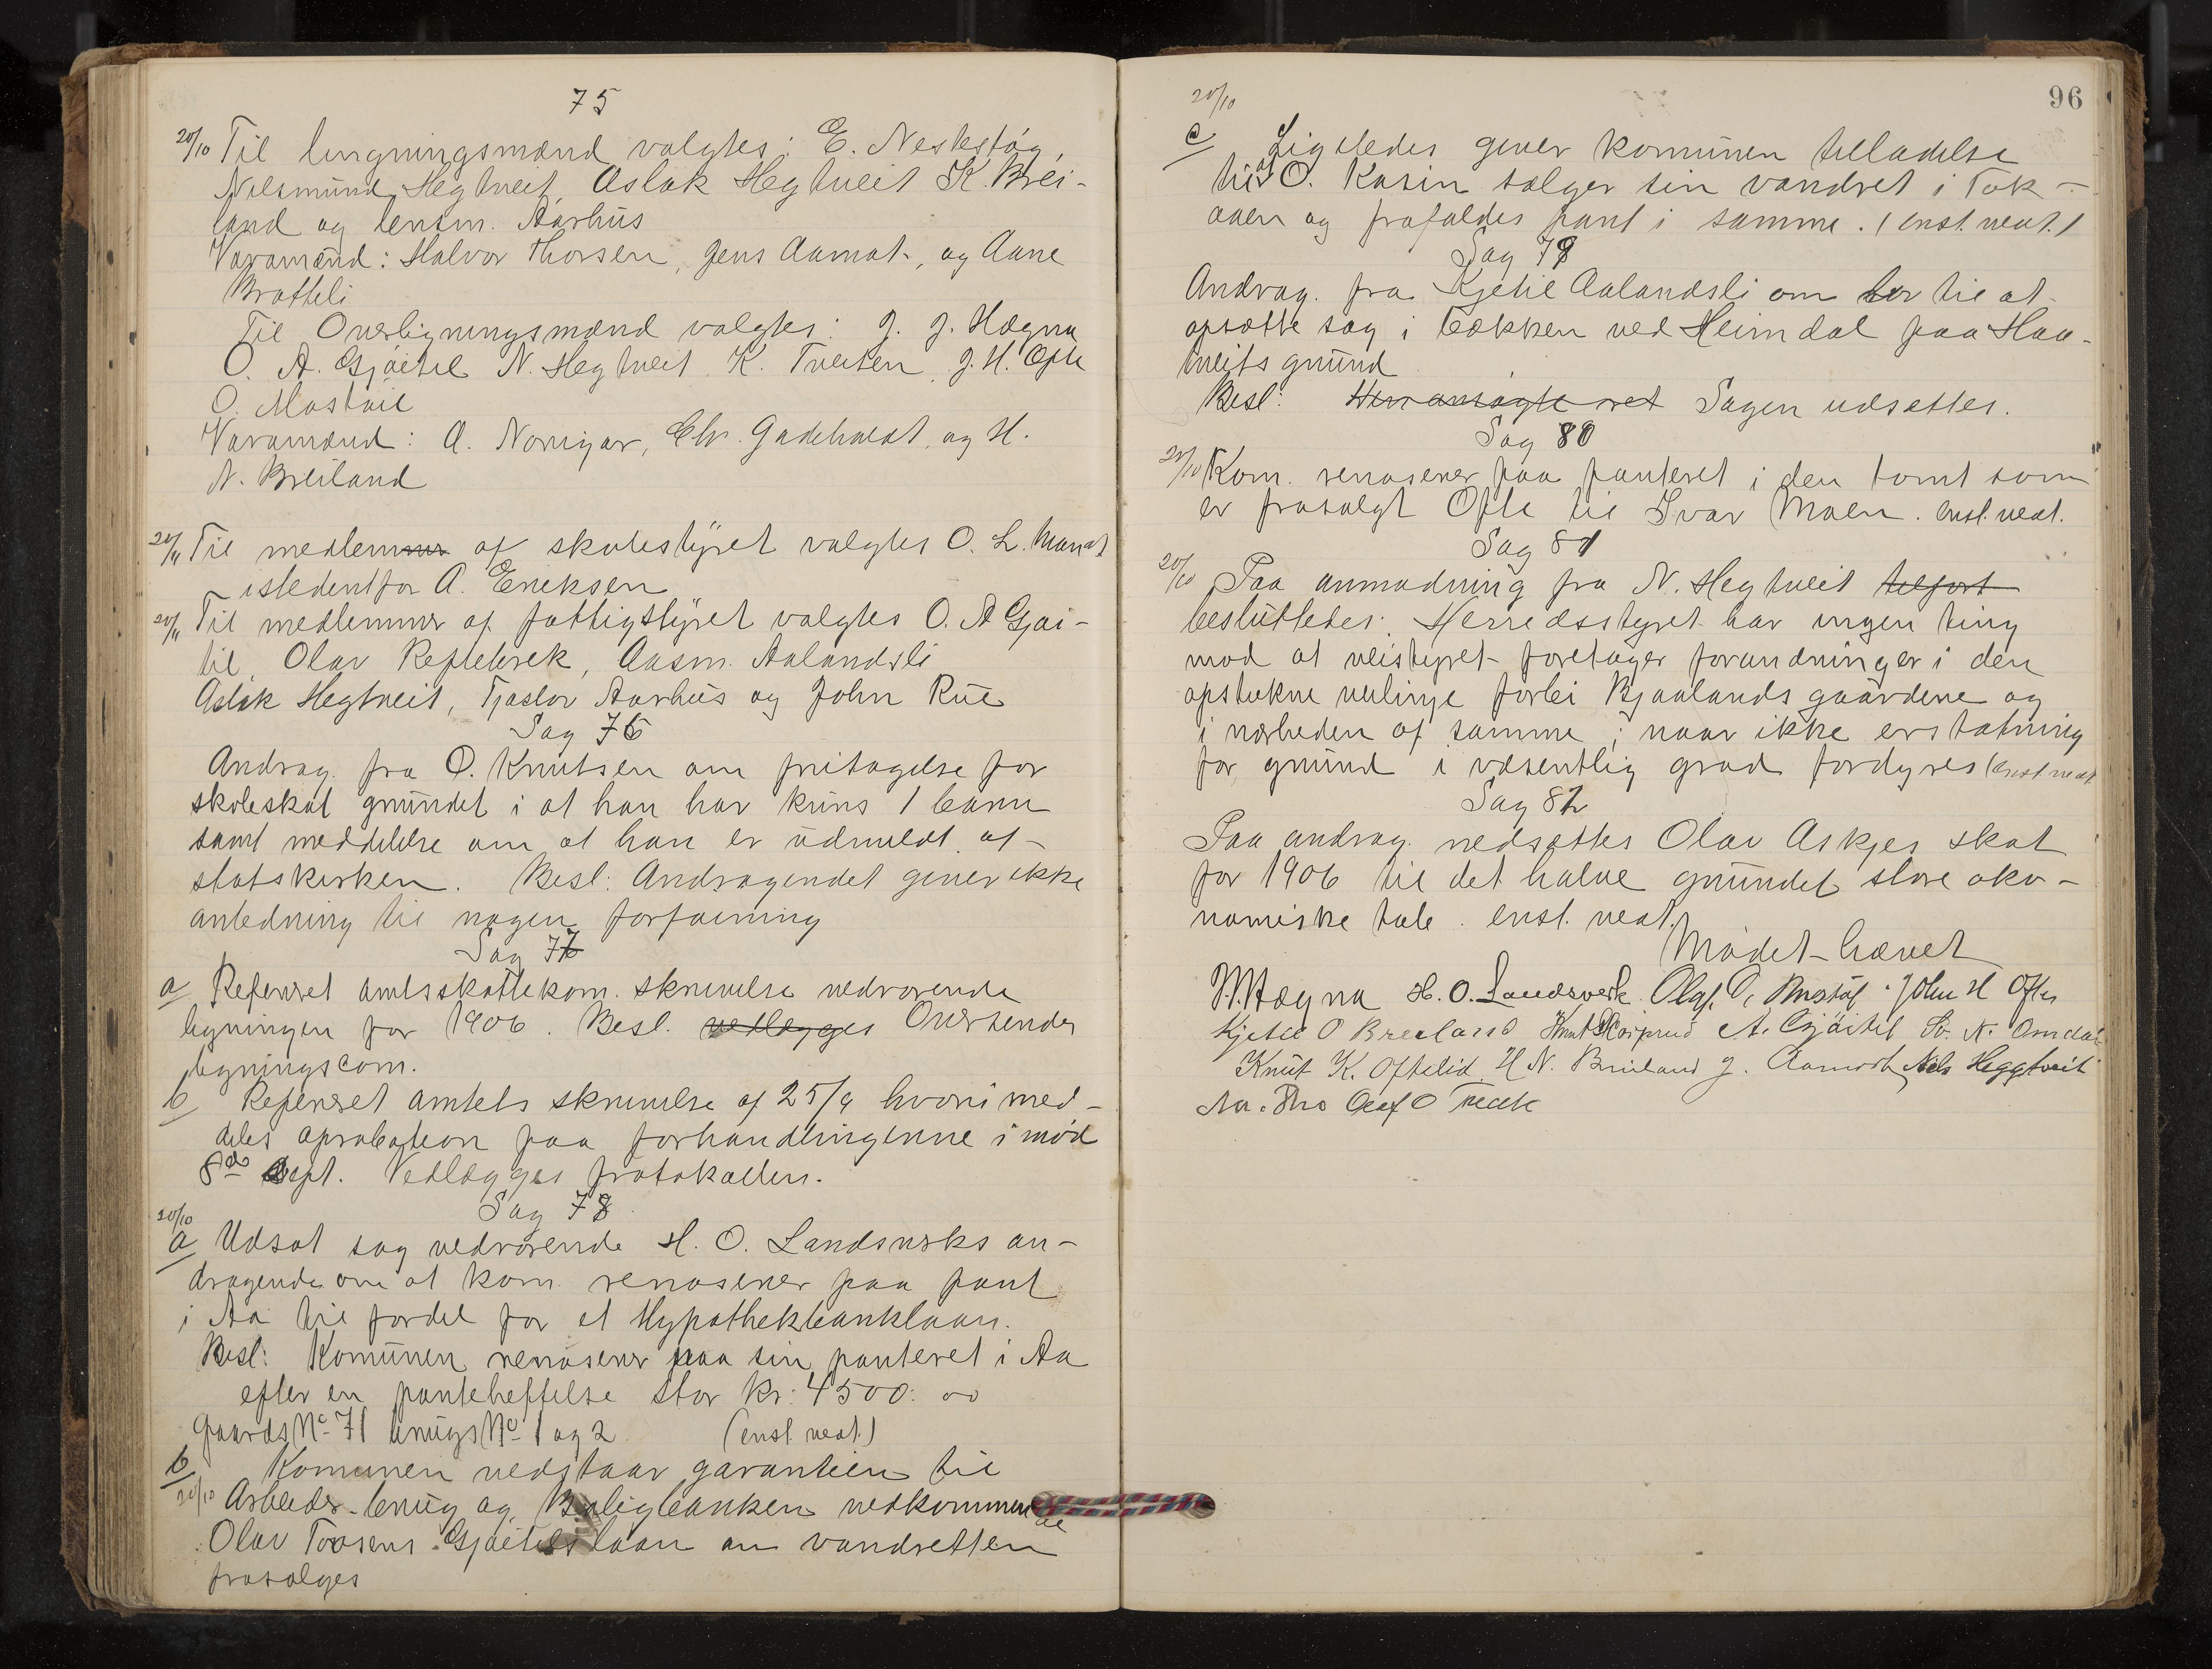 75
20/10 Til lingningsmænd valgtes: E. Neslestøg,
Nilsmund Hegtveit, Aslak Hegtveit K. Brei-
land og lensm. Aarhus
Varamænd: Halvor Thorsen, Jens Aamot, og Aane
Bratteli
Til Overligningsmænd valgtes: J. J. Hægna
O. A. Gjøitil N. Hegtveit K. Tveiten, J. H. Ofte
O. Mostøil
Varamænd: A. Norigar, Chr. Gadeholdt, og H.
N. Breiland
20/11 Til medlem af skolestyret valgtes O. L.
istedentfor A. Eriksen
20/11 Til medlemmer af fattigstyret valgtes O. A Gjøi-
til, Olav, Aasm. Aalandsli
Aslak Hegtveit, Tjøslov Aarhus og John Rue
Sag 76
Andrag. fra O. Knutsen om fritagelse for
skoleskat grundet i at han har kuns 1 barn
samt meddelelse om at han er udmeldt af
statskirken. Besl: Andragendet giver ikke
anledning til nogen forføining
Sag 77
a Referert amtsskattekom. skrivelse vedrørende
ligningen for 1906. Besl. vedlægges Oversendes
ligningscom.
b Referert amtets skrivelse af 25/9 hvori med-
deles aprobation paa forhandlingerne i mød
8de sept. Vedlægges protokollen.
Sag 78
20/10
a Udsat sag vedrørende H. O. Landsverks an-
dragende om at kom. renoserer paa pant
i Aa til fordel for et Hypothekbanklaan.
Besl: Komunen renoserer paa sin panteret i Aa
efter en panteheftelse stor kr: 4500: 00
Gaards No 71 brugs No 1 og 2 (enst. veat.)
b Komunen vedstaar garantien til
20/10 Arbeider-brug og Boligbanken vedkommende
Olav Toosens Gjøitils laan om vandretten
frasælges
96
20/10
c Ligeledes giver komunen tilladelse
til at O. Kasin sælger sin vandret i Tok-
aaen og frafaldes pant i samme. (enst. veat.)
Sag 79
Andrag. fra Kjetil Aalandsli om lov til at
opsætte sag i bækken ved Heimdal paa Haa-
tveits grund
Besl: Sagen udsettes.
Sag 80
20/10 Kom. renoserer paa panteret i den tomt som
er frasolgt Ofte til Ivar Moen. enst. veat.
Sag 81
20/10 Paa anmodning fra N. Hegtveit tilført
besluttedes: Herredsstyret har ingen ting
mod at veistyret foretager forandringer i den
opstukne veilinje forbi Bjaalands gaardene og
i nærheden af samme; naar ikke erstatning
for grund i væsentlig grad fordyres (enst veat
Sag 82
Paa andrag. nedsættes Olav Askjes skat
for 1906 til det halve grundet store øko-
nomiske tab. enst. veat.
Mødet hævet
J. J. Hægna H. O. Landsverk. Olaf. O. John H Ofte
Kjetil O Breiland Knut A. Gjøitil Sv. N. Omdal
Knut K. Oftelid H N. Breiland J. Aamodt Nils Heggtveit
Olaf O